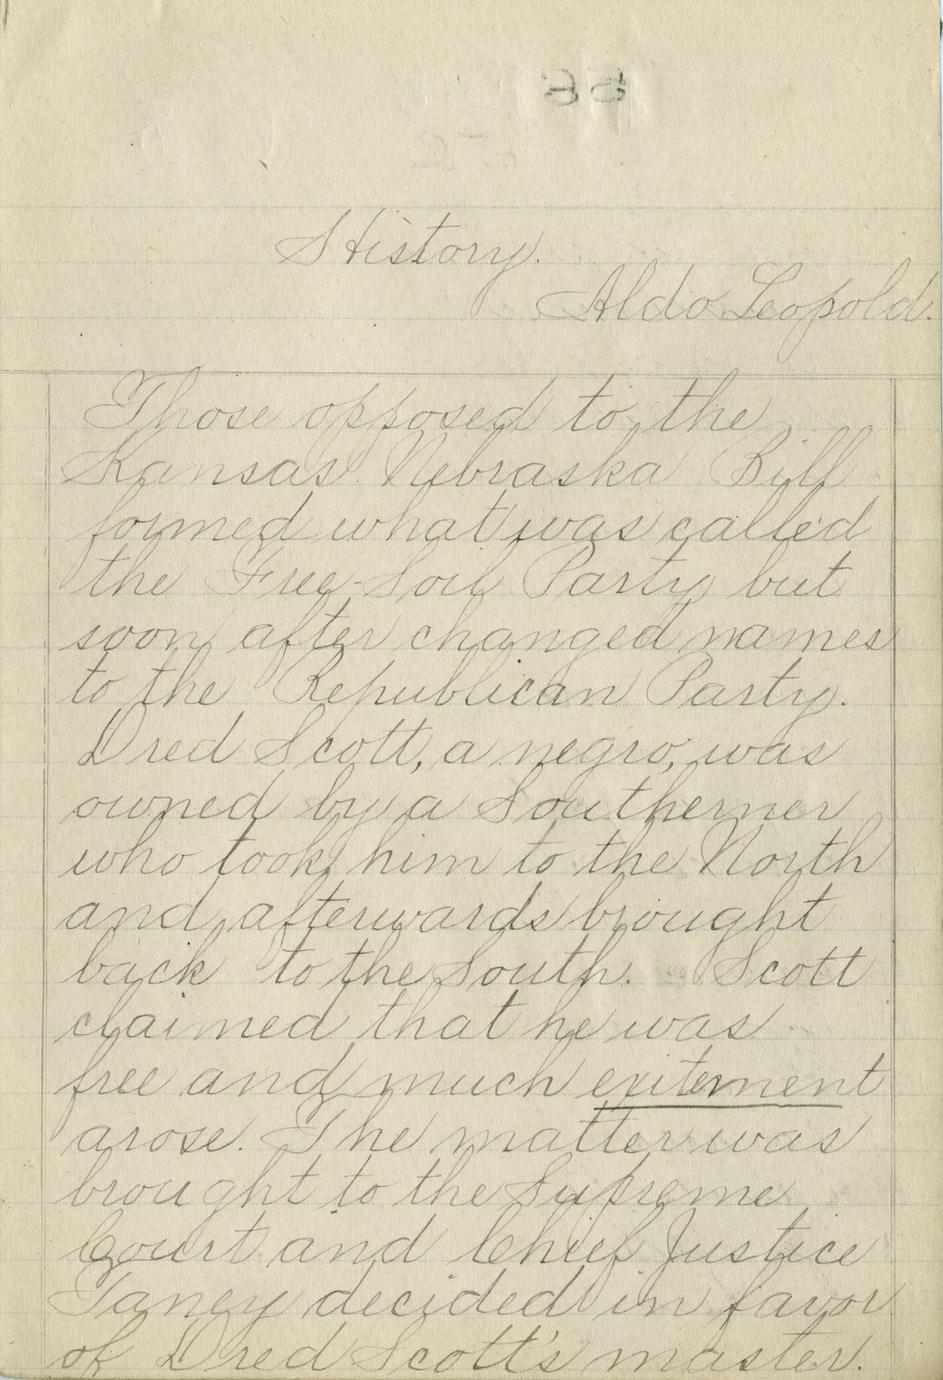 58
History.
Aldo Leopold.
Those opposed to the
Kansas Nebraska Bill
formed what was called
the Free-Soil Party but
soon after changed names
to the Republican Party.
Dred Scott, a negro, was
owned by a Southerner
who took him to the North
and afterwards brought
back to the South. Scott
claimed that he was
free and much exitement
arose. The matter was
brought to the Supreme
Court and Chief Justice
Taney decided in favor
of Dred Scott's master.